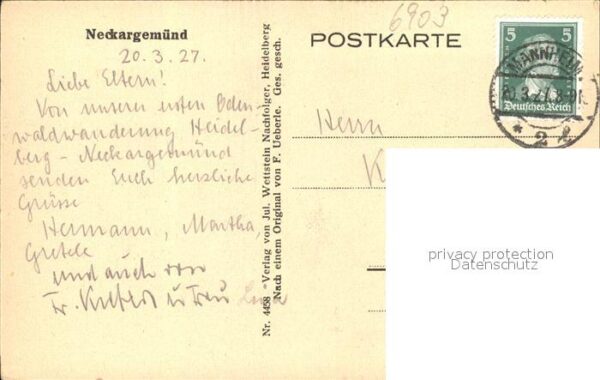 Neckargemünd
20.3.27.
Liebe Eltern!
Von unserer ersten Oden-
waldwanderung Heidel-
berg - Neckargemünd
senden Euch herzliche
Grüsse
Hermann, Martha,
Gretele
und auch von
Fr. u. Frau
Nr. 4458 Verlag von Jul. Wettstein Nachfolger, Heidelberg
Nach einem Original von F. Ueberle. Ges. gesch.
6903
POSTKARTE
5 5
Deutsches Reich
MANNHEIM
* 2
Herrn
K
privacy protection
Datenschutz